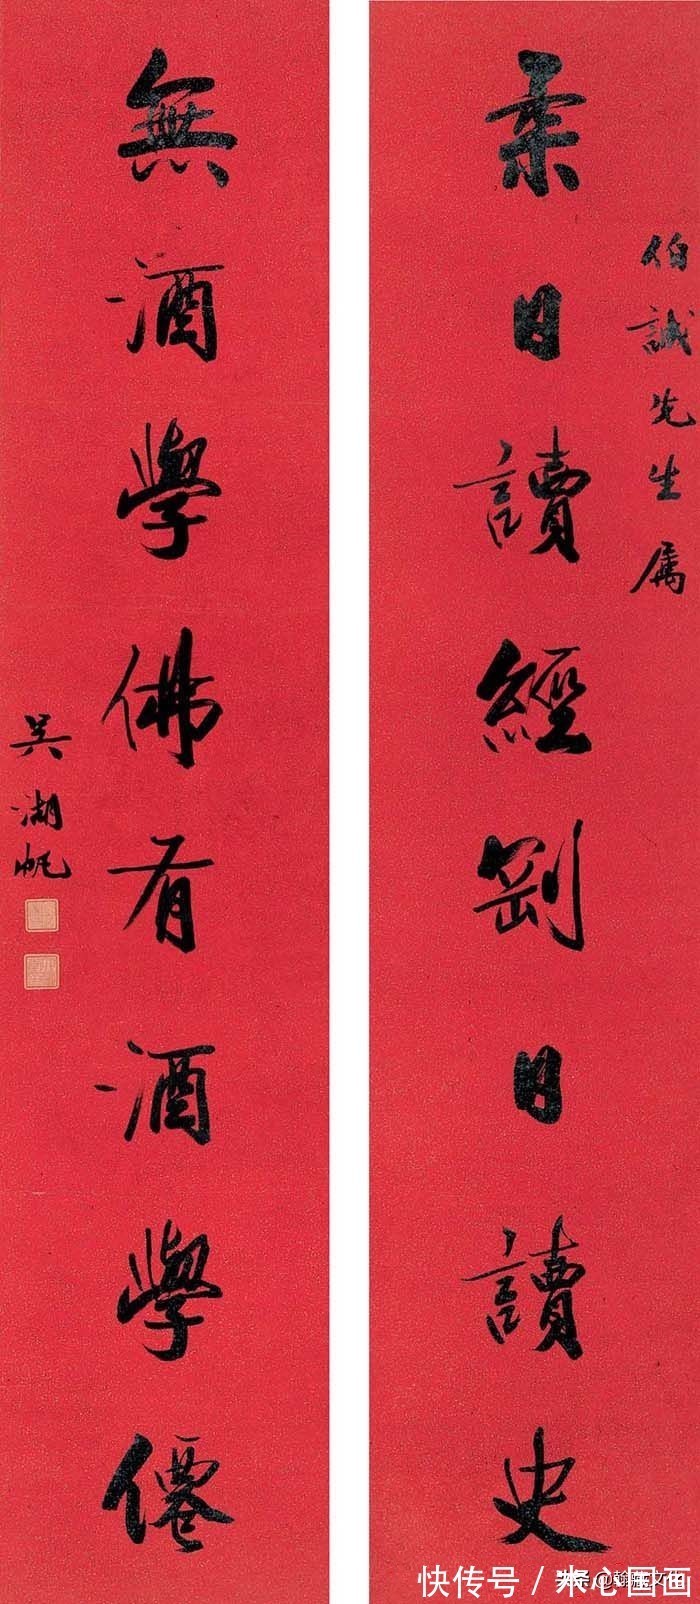 伯誠先生属
柔日讀經剛日讀史
無酒學佛有酒學僊
吴湖帆
快传号 / 木心国画